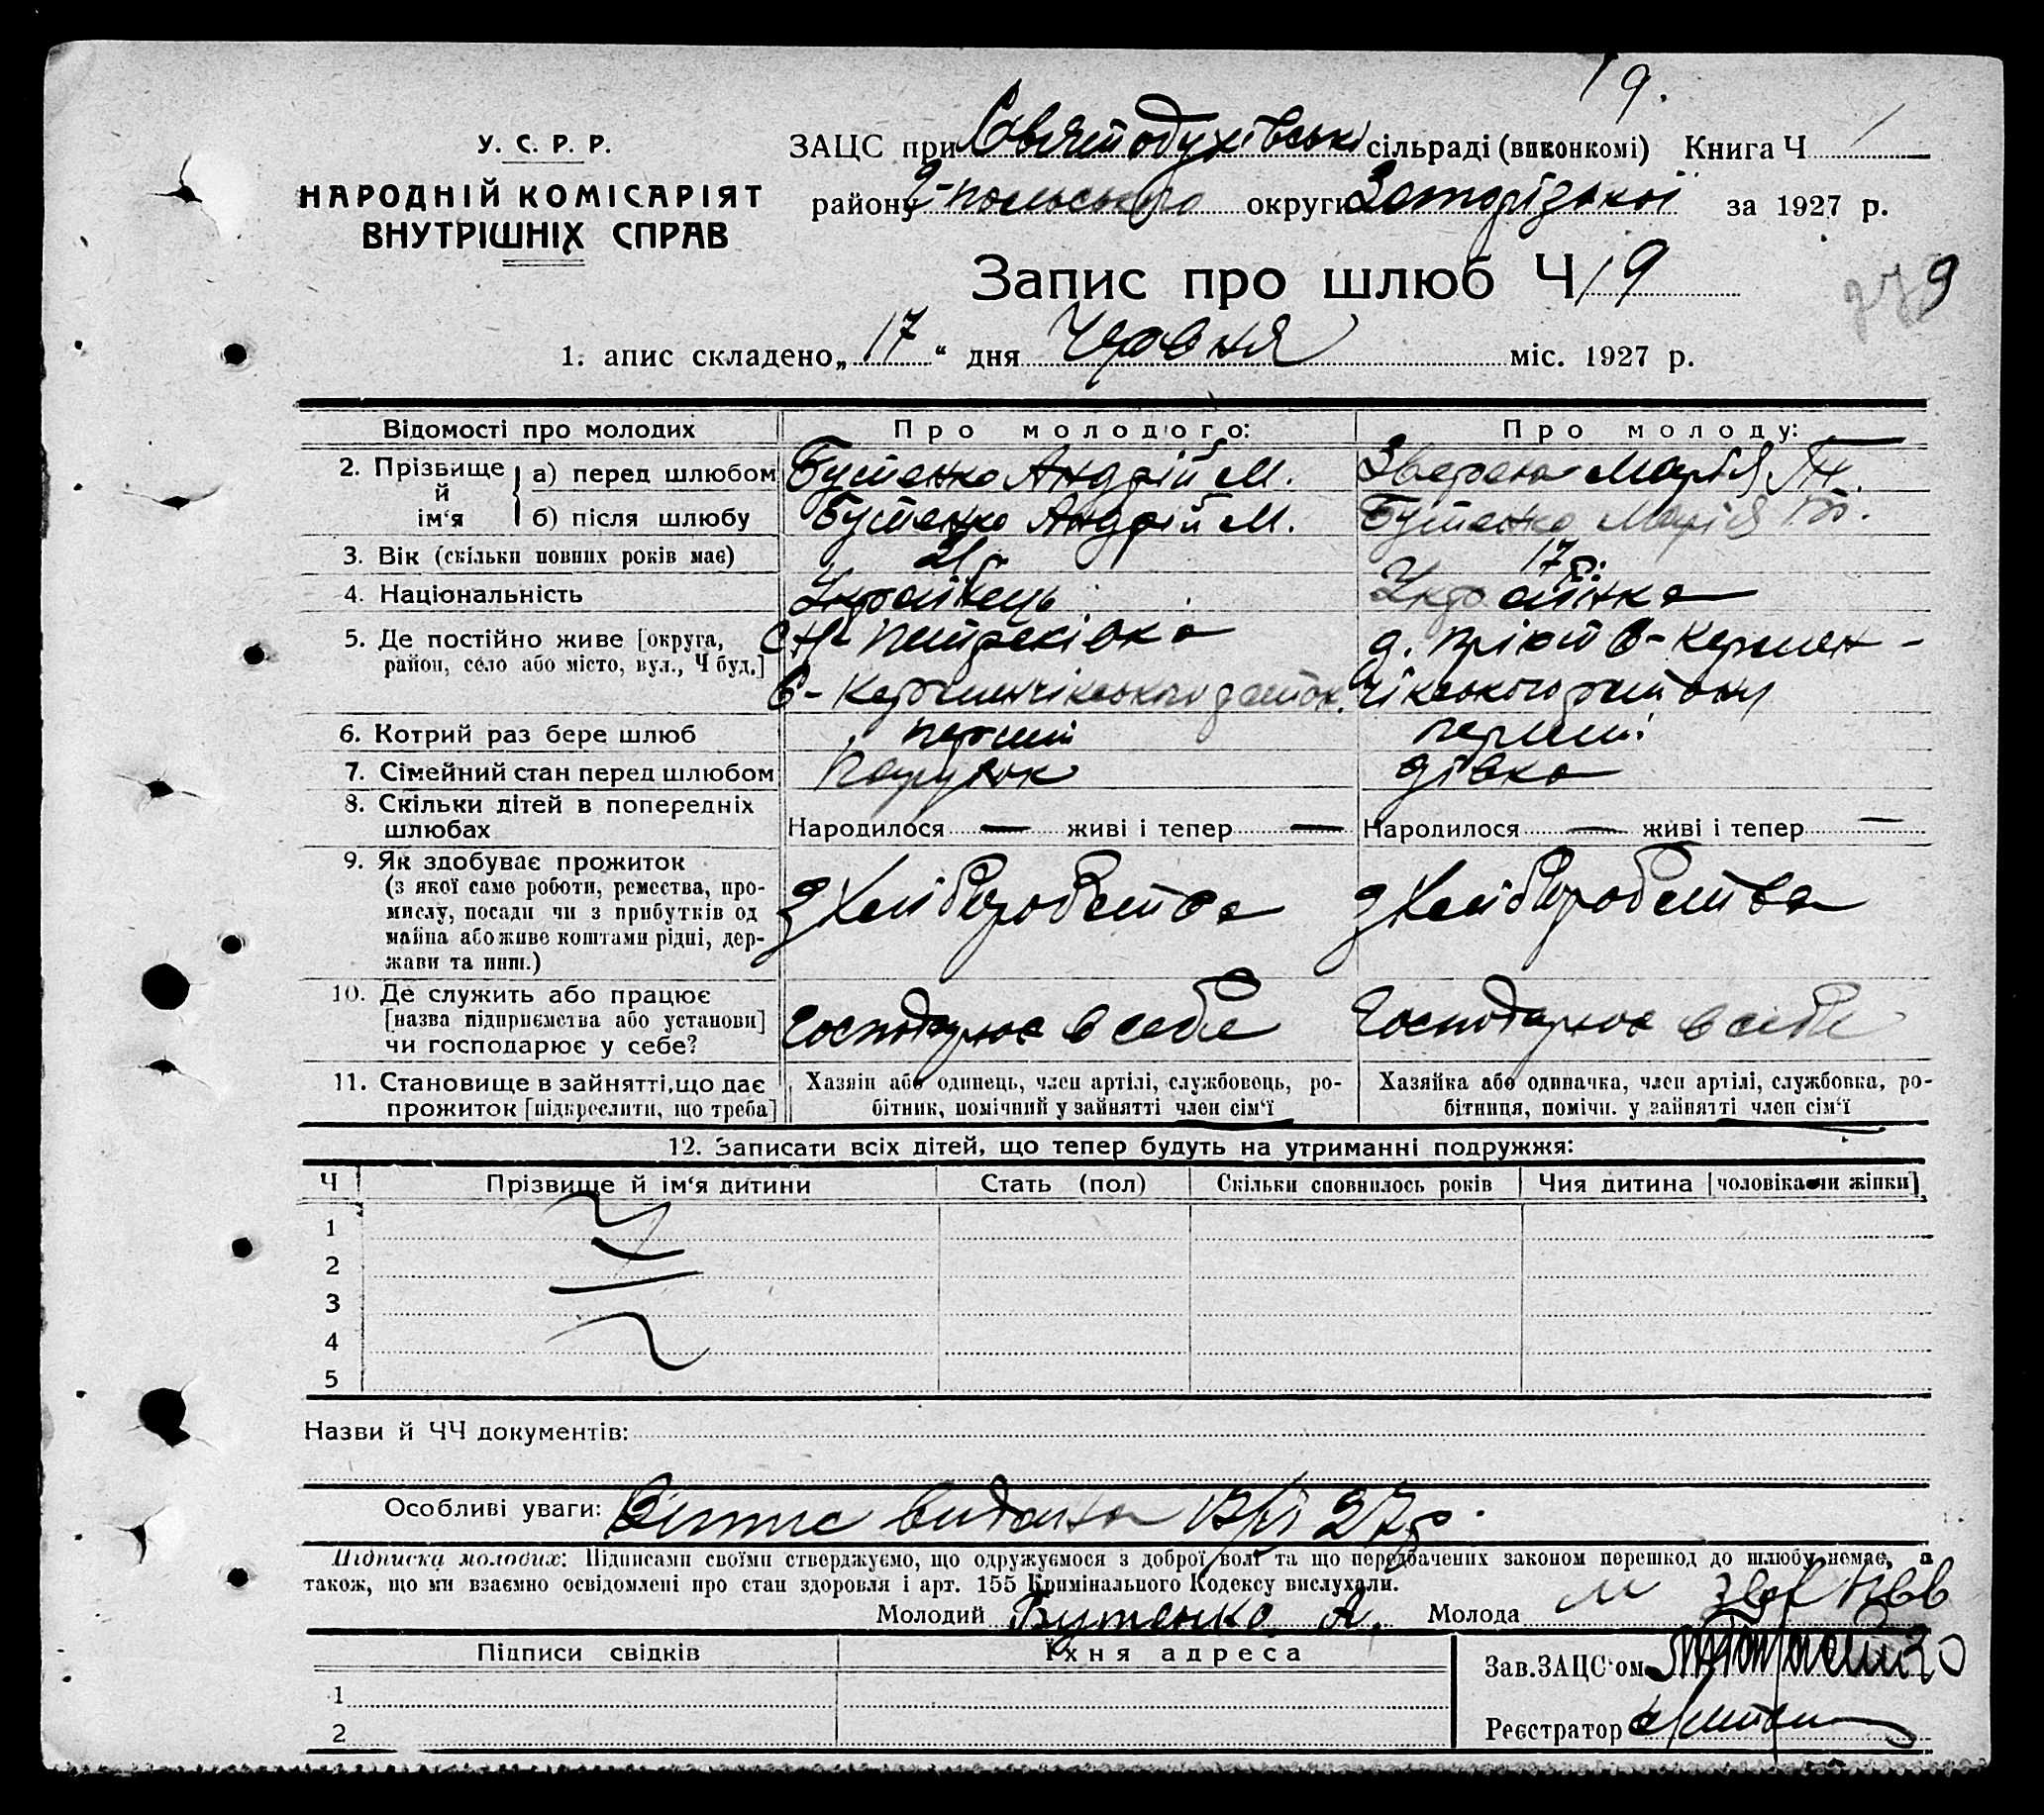 19.
У. С. Р. Р.
НАРОДНІЙ КОМІСАРІЯТ
ВНУТРІШНІХ СПРАВ
ЗАЦС при Святодухівські сільраді (виконкомі) Книга Ч 1
району польського округи Запорізької за 1927 р.
Запис про шлюб Ч 19
9
1. апис складено „ 17 “ дня Червня міс. 1927 р.
Відомості про молодих Про молодого: Про молоду:
2. Прізвище й ім‘я
а) перед шлюбом Бутенко Андрій М. Марія
б) після шлюбу Бутенко Андрій М. Бутенко Марія
3. Вік (скільки повних років має) 21 р. 17 р.
4. Національність Українець Українка
5. Де постійно живе [округа, район, село або місто, вул., Ч буд.]
6. Котрий раз бере шлюб перший перший
7. Сімейний стан перед шлюбом Парубок дівка
8. Скільки дітей в попередніх шлюбах Народилося — живі і тепер — Народилося — живі і тепер —
9. Як здобуває прожиток
(з якої саме роботи, ремества, про-
мислу, посади чи з прибутків од
майна або живе коштами рідні, дер-
жави та инш.)
з Хліборобства з Хліборобства
10. Де служить або працює
[назва підприємства або установи]
чи господарює у себе?
Господарює в себе Господарює в себе
11. Становище в зайнятті, що дає
прожиток [підкреслити, що треба]
Хазяїн або одинець, член артілі, службовець, ро-
бітник, помічний у зайнятті член сім‘ї
Хазяйка або одиначка, член артілі, службовка, ро-
бітниця, помічн. у зайнятті член сім‘ї
12. Записати всіх дітей, що тепер будуть на утриманні подружжя:
Ч Прізвище й ім‘я дитини Стать (пол) Скільки сповнилось років Чия дитина [чоловіка чи жінки]
1
2
3
4
5
Назви й ЧЧ документів:
Особливі уваги: видана 27 р.
Підписка молодих: Підписами своїми стверджуємо, що одружуємося з доброї волі та що передбачених законом перешкод до шлюбу немає, а
також, що ми взаємно освідомлені про стан здоровля і арт. 155 Кримінального Кодексу вислухали.
Молодий Бутенко А. Молода
Підписи свідків Їхня адреса
Зав.ЗАЦС‘ом
1
2
Реєстратор